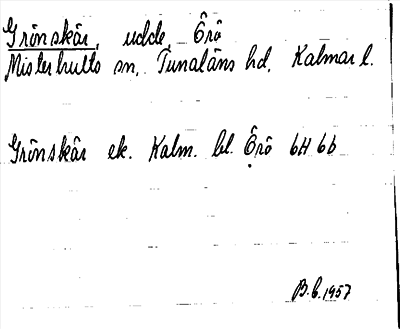 Grönskär, udde, Örö
Misterhults sn, Tunaläns hd, Kalmar l.
Grönskär ek. Kalm. bl. Örö 6H 6b
B.C. 1957